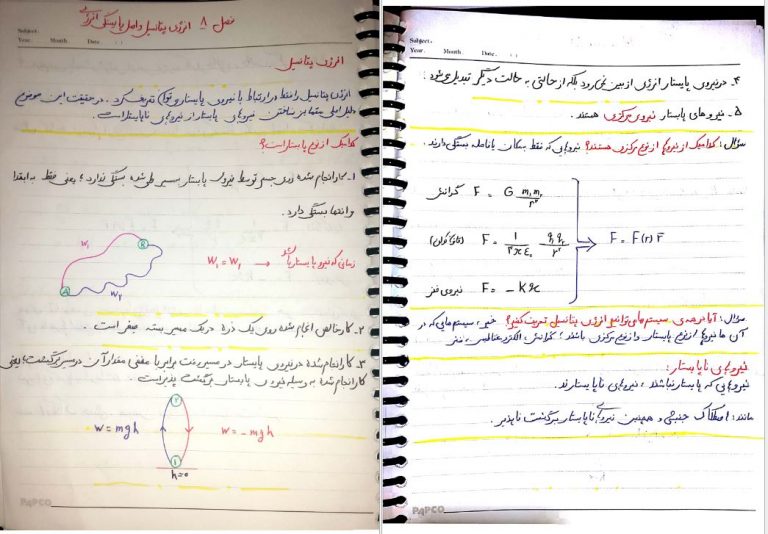 Subject:
Year. Month. Date.
فصل ۸ انرژی پتانسیل و اصل پایستگی انرژی
انرژی پتانسیل
انرژی پتانسیل را فقط در ارتباط با نیروی پایستار می‌توان تعریف کرد. در حقیقت این موضوع
دلیل اصلی متمایز ساختن نیروهای پایستار از نیروهای ناپایستار است.
کدامیک از نوع پایستار است؟
۱- کار انجام شده روی جسم توسط نیروی پایستار به مسیر طی شده بستگی ندارد؛ یعنی فقط به ابتدا
و انتها بستگی دارد.
W₁
B
A
W₂
زمانی که نیرو پایستار باشد → W₁ = W₂
۲- کار خالص انجام شده روی یک ذره در یک مسیر بسته صفر است.
۳- کار انجام شده در نیروی پایستار در مسیر رفت برابر با منفی مقدار آن در مسیر برگشت است؛ یعنی
کار انجام شده به وسیله نیروی پایستار برگشت پذیر است.
۲
W = mgh
W = -mgh
۱
h=0
PAPCO
Subject.
Year. Month. Date.
۴- در نیروی پایستار انرژی از بین نمی رود بلکه از حالتی به حالت دیگر تبدیل می‌شود.
۵- نیروهای پایستار نیروی مرکزی هستند.
سؤال: کدامیک از نیروها از نوع مرکزی هستند؟ نیروهایی که فقط به مکان یا فاصله بستگی دارند.
گرانش F = G m₁m₂/r²
(قانون کولن) F = 1/۴πε₀ q₁q₂/r²
F = F(r) r̂
نیروی فنر F = -kx
سؤال: آیا در همه‌ی سیستم ها می‌توانیم انرژی پتانسیل تعریف کنیم؟ خیر، سیستم هایی که در
آن ها نیروها از نوع پایستار و از نوع مرکزی باشند؛ گرانش، الکترومغناطیس، فنر
نیروهای ناپایستار:
نیروهایی که پایستار نباشند، نیروهای ناپایستارند.
مانند: اصطکاک جنبشی و همچنین نیروهای ناپایستار برگشت ناپذیر.
PAPCO